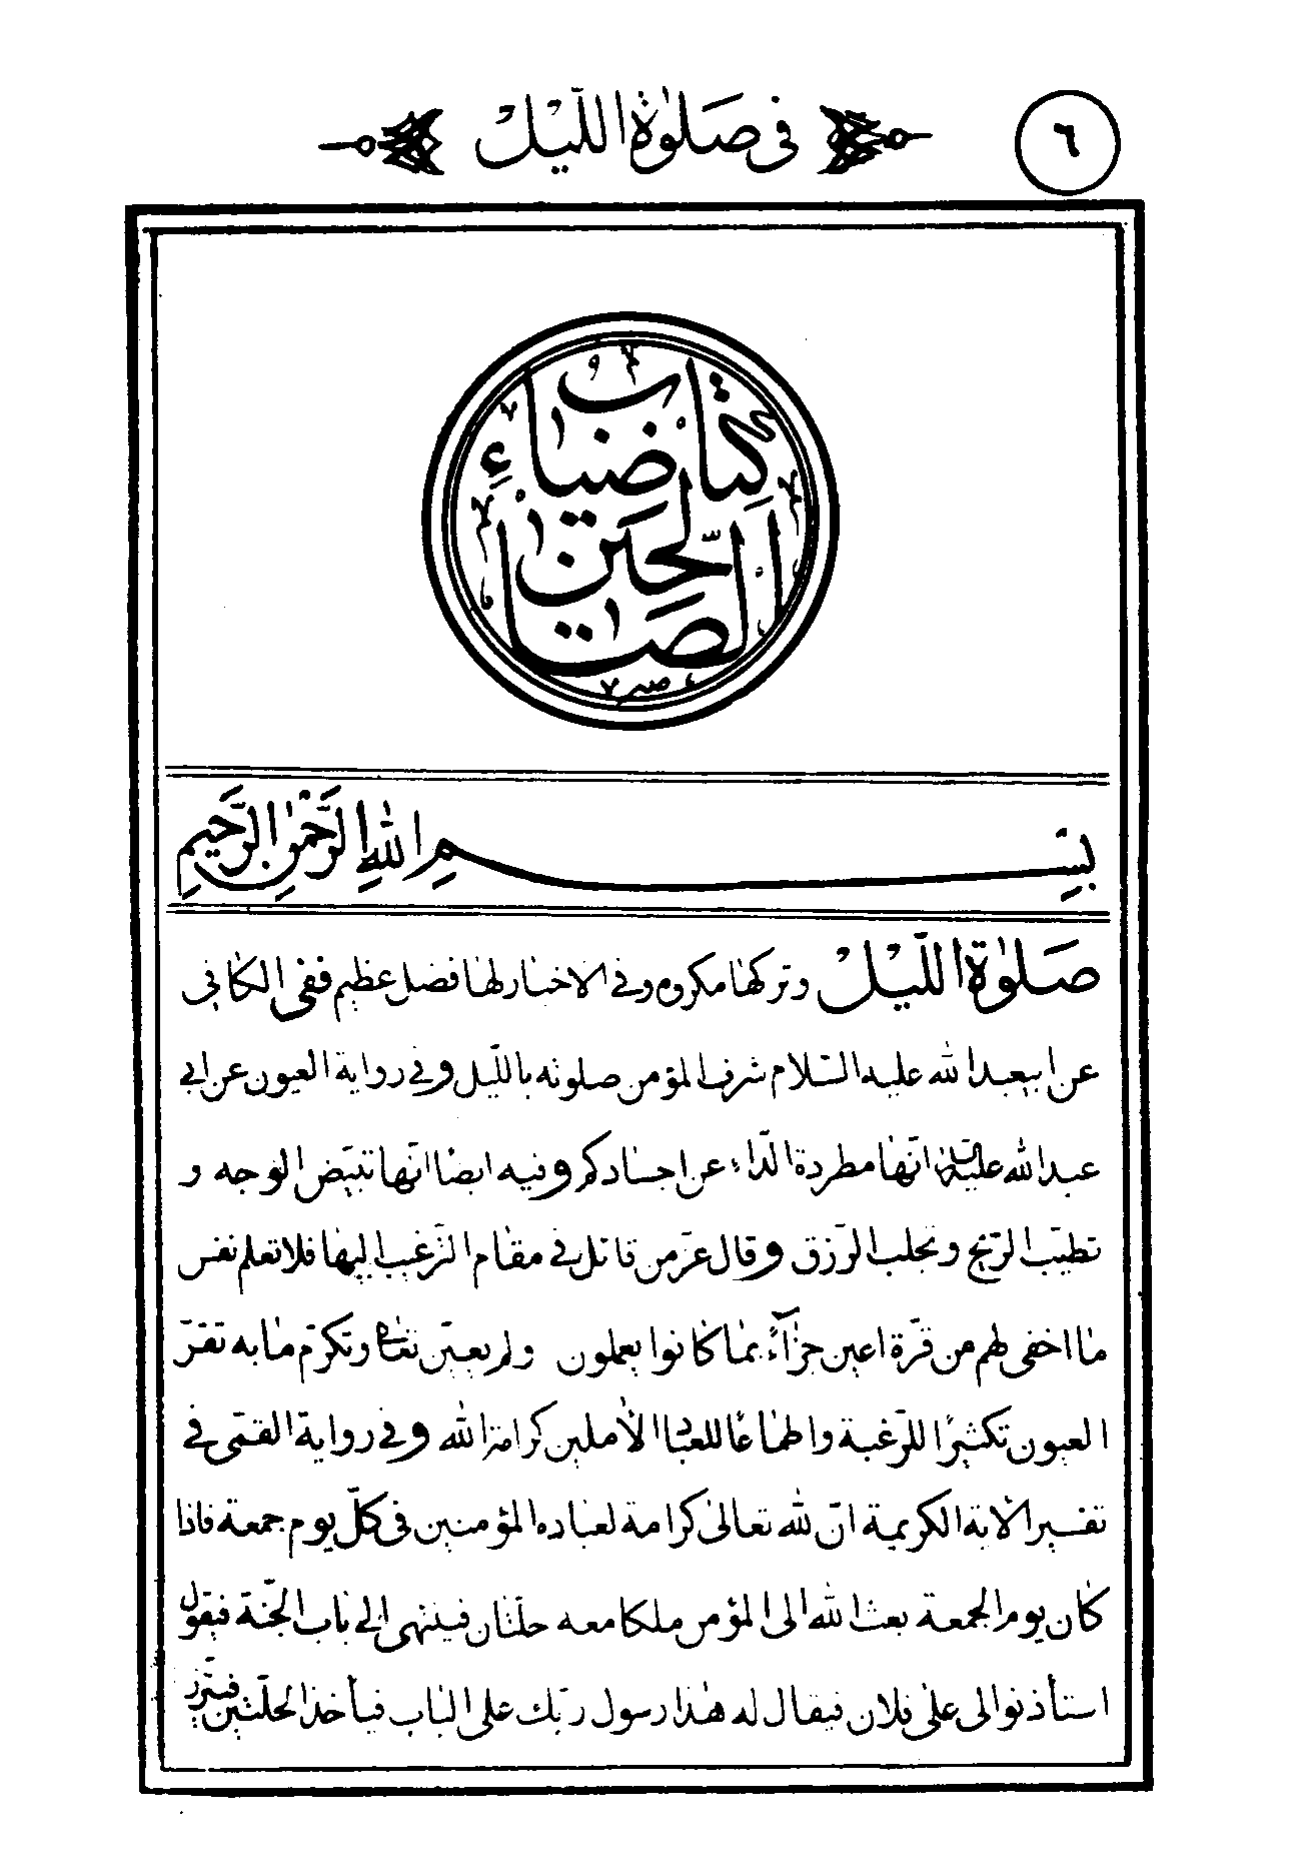 ٦
في صلوة الليل
كتاب ضياء
الصالحين
بسم الله الرحمن الرحيم
صلوة الليل وتركها مكروه وفي الاخبار لها فضل عظيم ففي الكافي
عن ابيعبدالله عليه السلام شرف المؤمن صلوته بالليل وفي رواية العيون عن ابي
عبدالله انها مطردة الداء عن اجسادكم وفيه ايضا انها تبيض الوجه و
تطيب الريح وتجلب الرزق وقال عز من قائل في مقام الترغيب اليها فلا تعلم نفس
ما اخفى لهم من قرة اعين جزآءً بما كانوا يعملون ولم يعين تعالى وتكرم ما به تقر
العيون تكثيرًا للرغبة واطماعًا للعباد الآملين كرامة الله وفي رواية القمى في
تفسير الآية الكريمة ان لله تعالى كرامة لعباده المؤمنين في كل يوم جمعة فاذا
كان يوم الجمعة بعث الله الى المؤمن ملكا معه حلتان فينتهى الى باب الجنة فيقول
استأذنوا لى على فلان فيقال له هذا رسول ربك على الباب فيأخذ الحلتين فيتزر